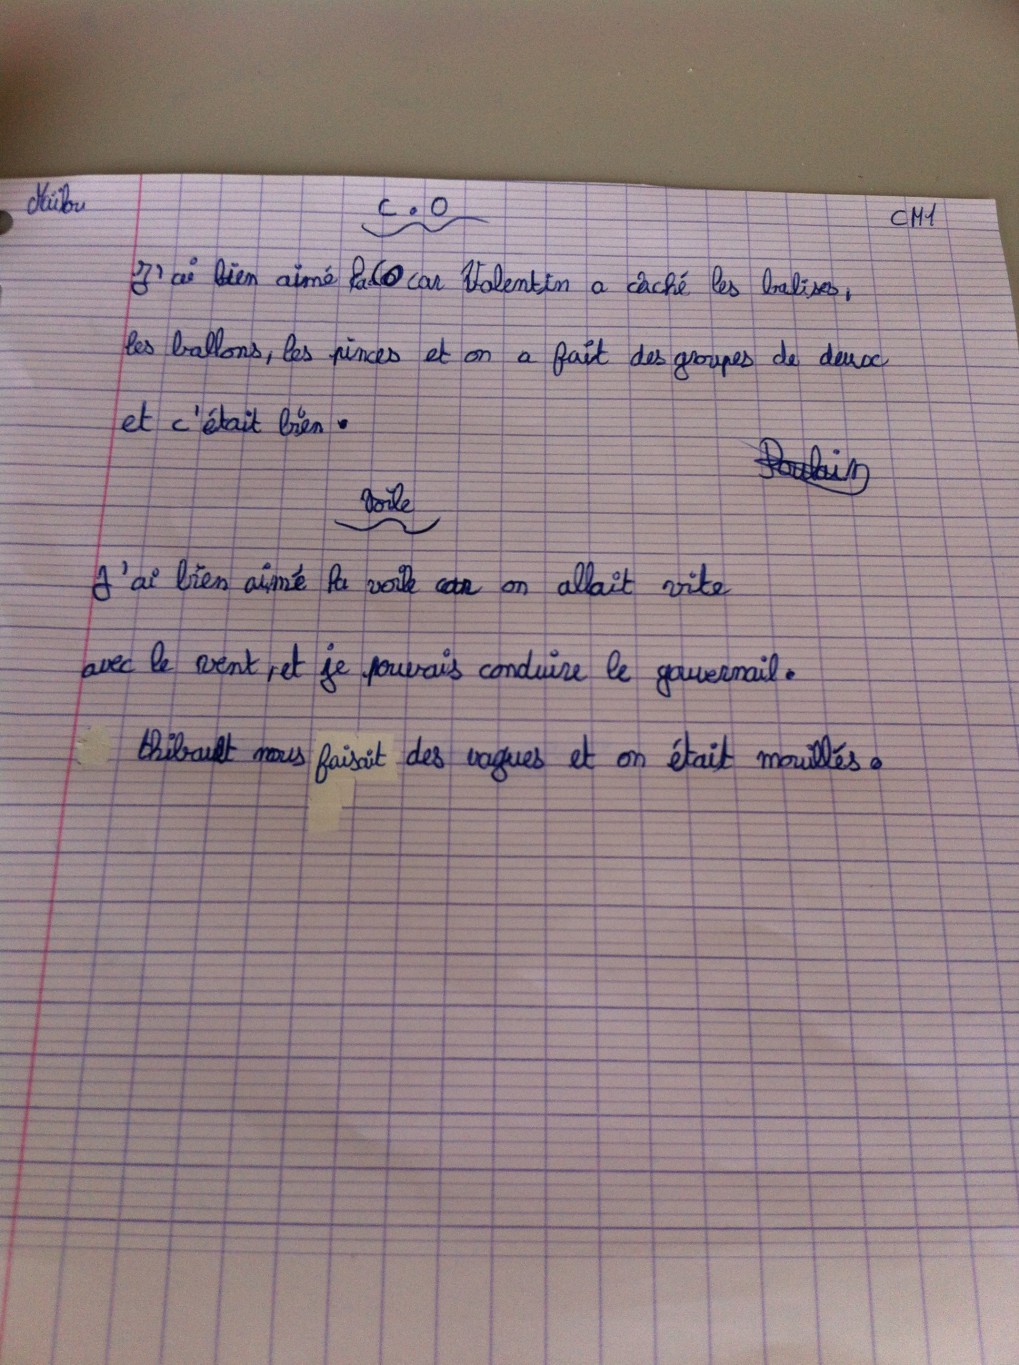 Maïlou C.O CM1
J'ai bien aimé la CO car Valentin a câché les balises,
les ballons, les pinces et on a fait des groupes de deux
et c'était bien.
Poulain
Voile
J'ai bien aimé la voile car on allait vite
avec le vent, et je pouvais conduire le gouvernail.
thibault nous faisait des vagues et on était mouillés.